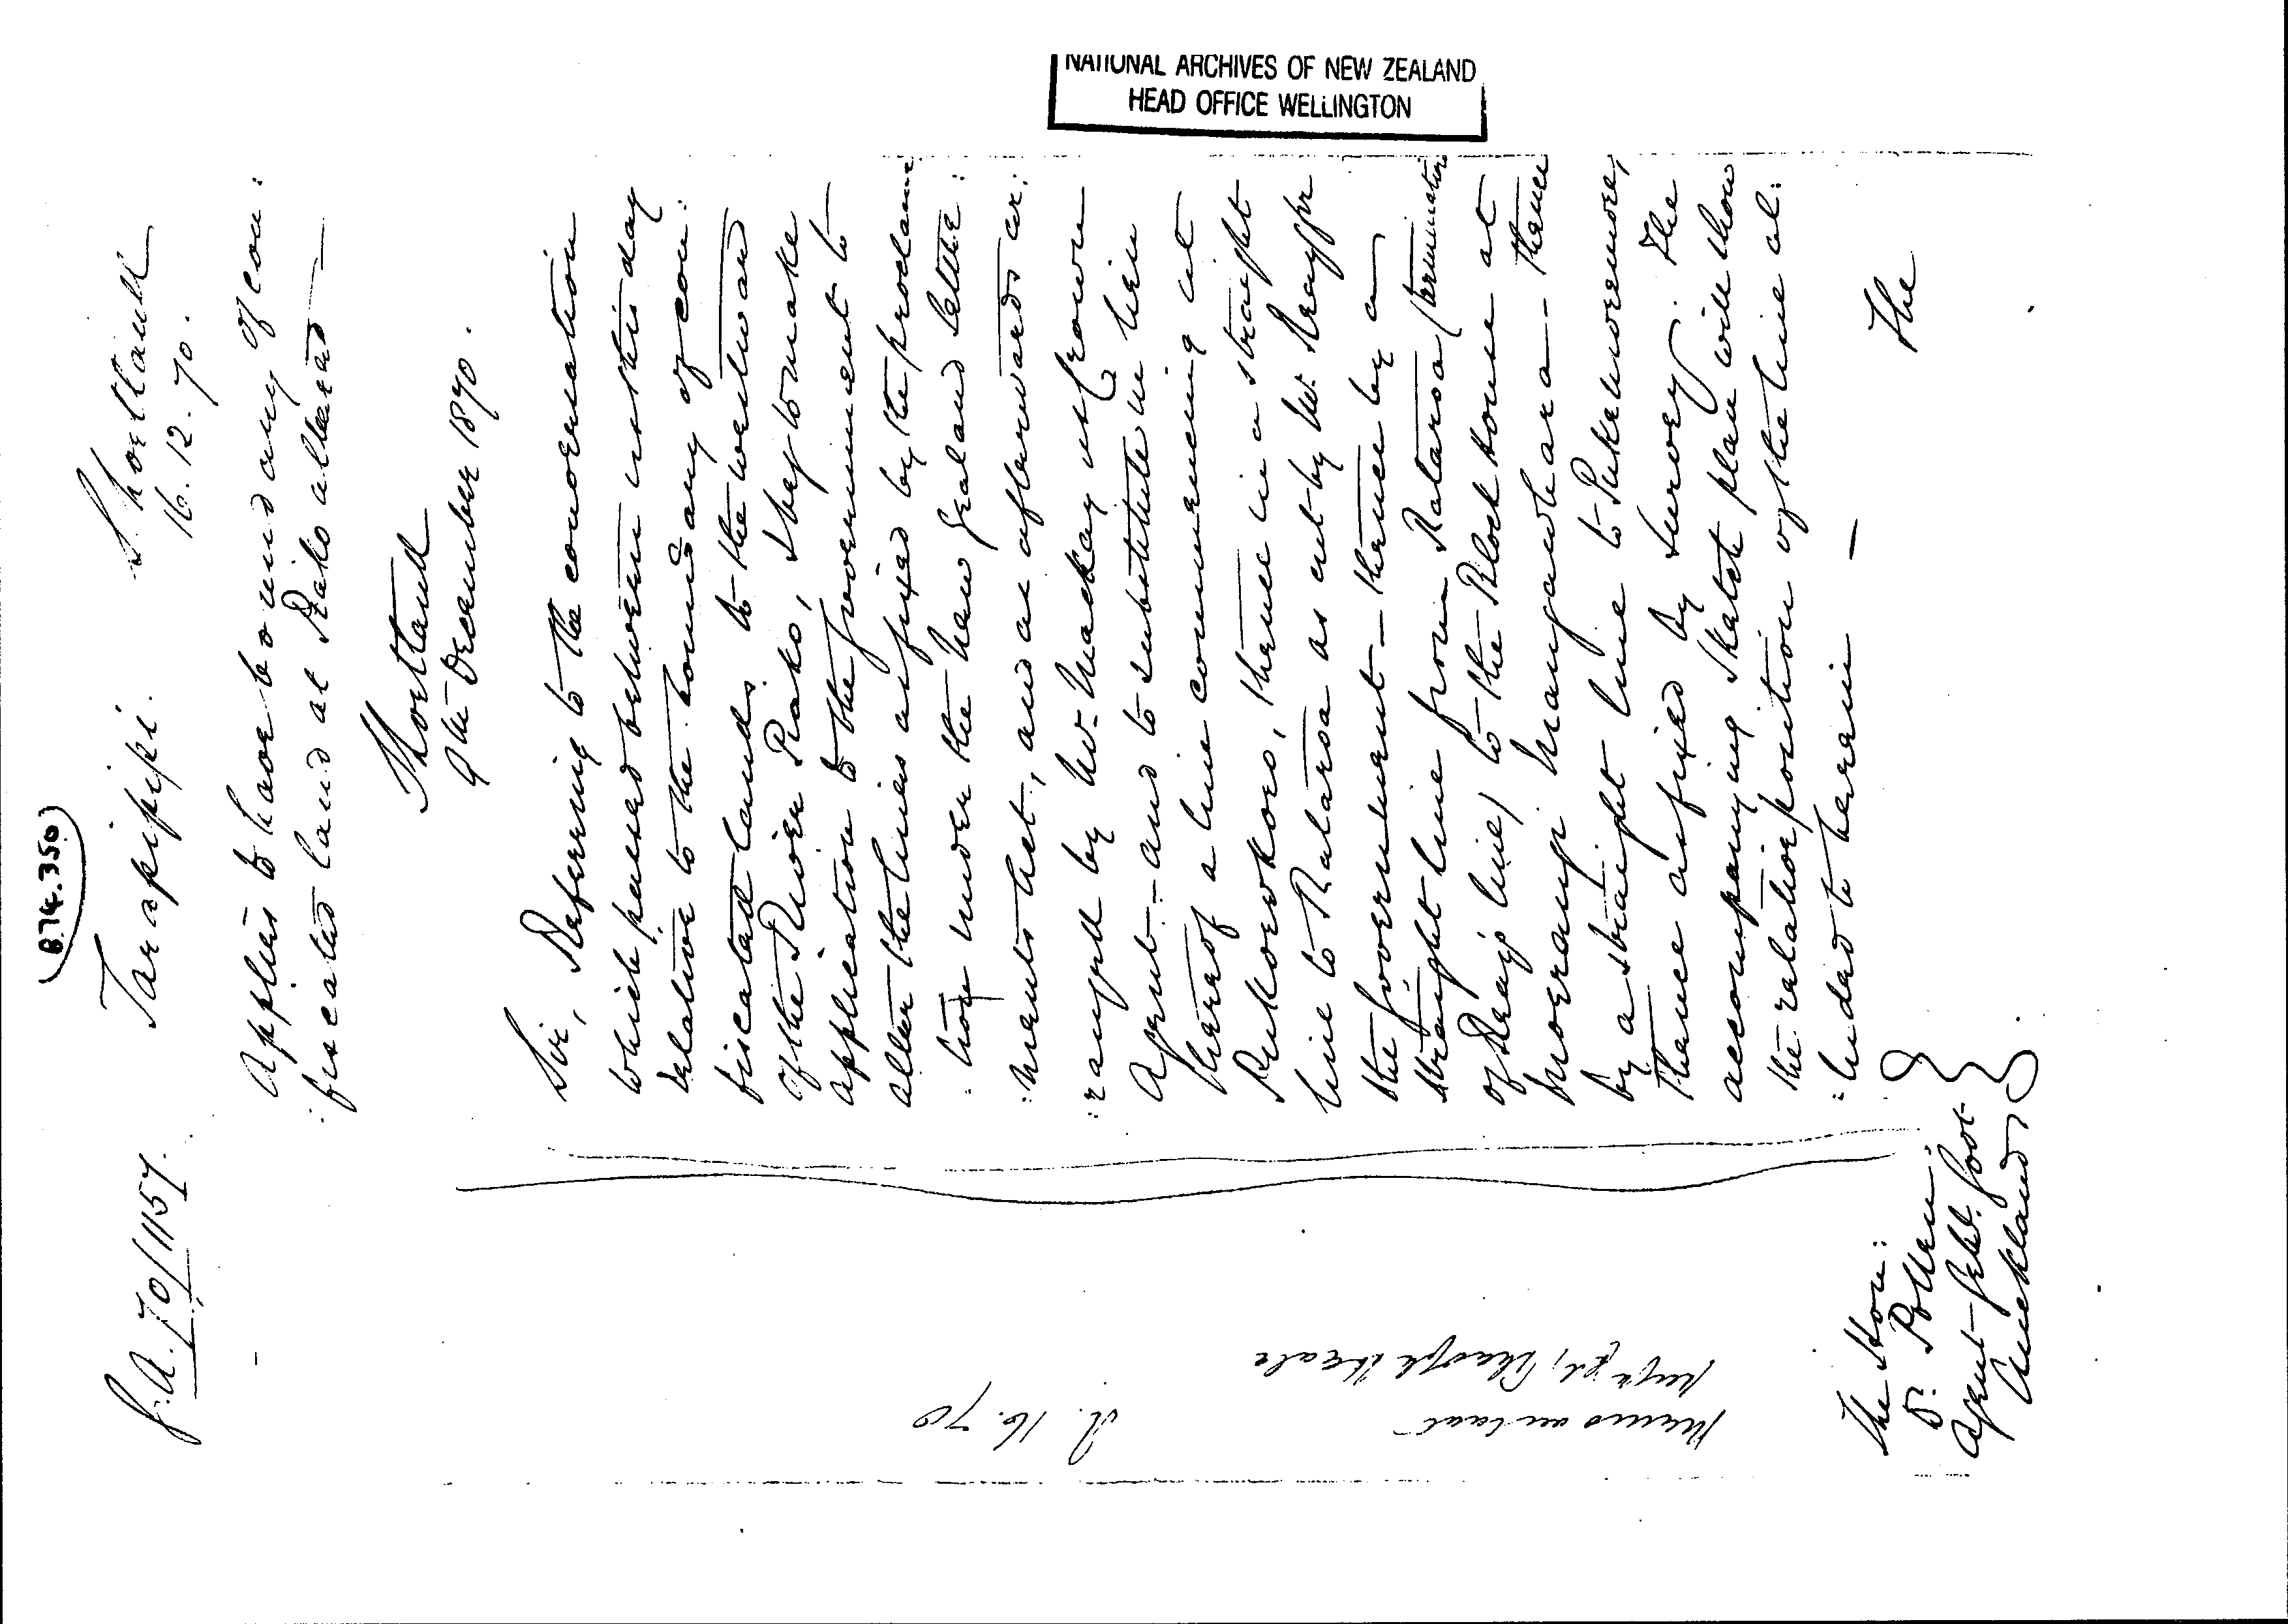 NATIONAL ARCHIVES OF NEW ZEALAND
HEAD OFFICE WELLINGTON
(874.350)
70/1157.
Tarapipipi.
Shortland
16.12.70.
Applies to have boundary of con:
:fiscated land at Piako altered
Shortland
9th December 1870.
Sir, Referring to the conversation
which passed between us this day
relative to the boundary of con:
fiscated lands to the westward
of the River Piako, I beg to make
application to the Government to
alter the lines as fixed by the proclama
:tion under the New Zealand Settle:
:ments Act, and as afterwards ar:
:ranged by Mr. Mackay as Crown
Agent - and to substitute in lieu
thereof a line commencing at
Pukorokoro, thence in a straight
line to Rataroa as cut by Mr.
the Government - thence by a
straight line from Rataroa (termination
of line) to the Block House at
thence
by a straight line to
thence as fixed by Survey. The
accompanying Sketch plan will show
the relative position of the line al:
:luded to herein —
The
The Hon:
D. Pollen.
Agent Genl. Govt
Auckland
Memo on back
16.70